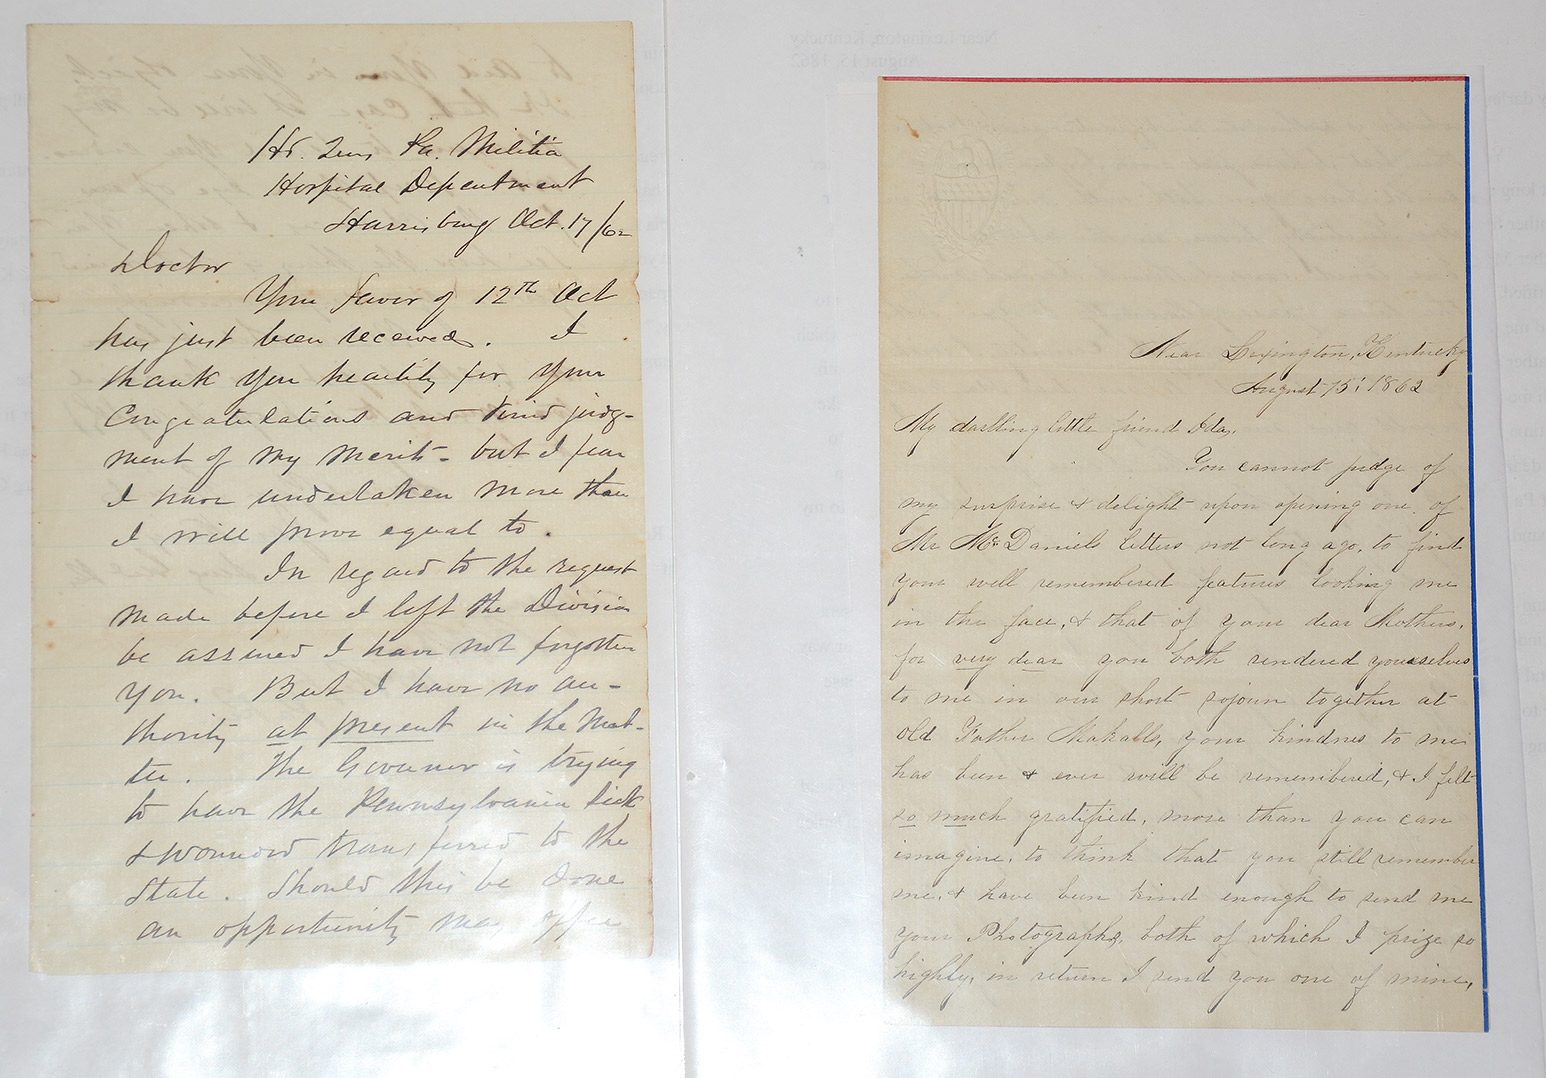 Hd. Qrs Pa. Militia
Hospital Department
Harrisburg Oct. 17/62
Doctor
Your favor of 12th Oct
has just been received. I
thank you heartily for your
congratulations and kind judg-
ment of my merits - but I fear
I have undertaken more than
I will prove equal to.
In regard to the request
made before I left the Division
be assured I have not forgotten
you. But I have no au-
thority at present in the mat-
ter. The Governor is trying
to have the Pennsylvania sick
& wounded transferred to the
State. Should this be done
an opportunity may offer
Near Lexington, Kentucky
August 15th 1862
My darling little friend Ida,
You cannot judge of
my surprise & delight upon opening one of
Mr McDaniels letters not long ago, to find
your well remembered features looking me
in the face, & that of your dear Mothers,
for very dear you both rendered yourselves
to me in our short sojourn together at
old Father Makalls, your kindness to me
has been & ever will be remembered, & I felt
so much gratified, more than you can
imagine, to think that you still remember
me, & have been kind enough to send me
your Photographs, both of which I prize so
highly, in return I send you one of mine,